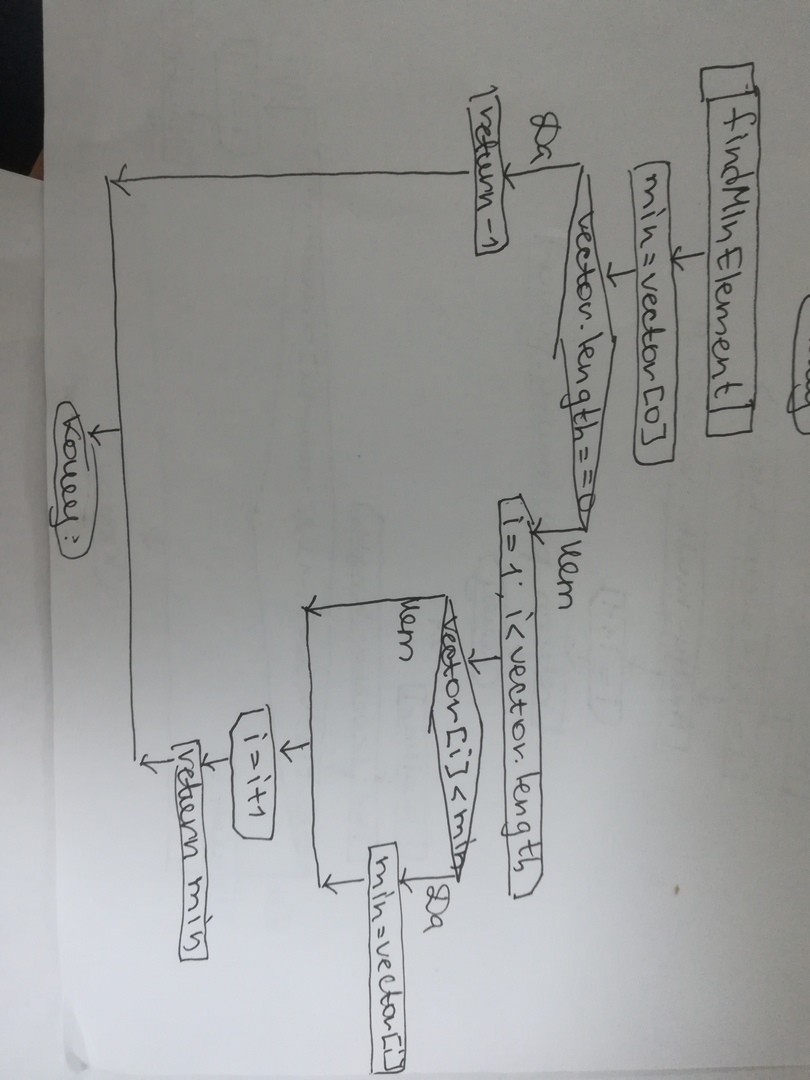 findMInElement
min=vector[0]
vector.length==0
Да
нет
return -1
i=1; i<vector.length
vector[i]<min
нет
Да
min=vector[i]
i=i+1
return min
Конец: